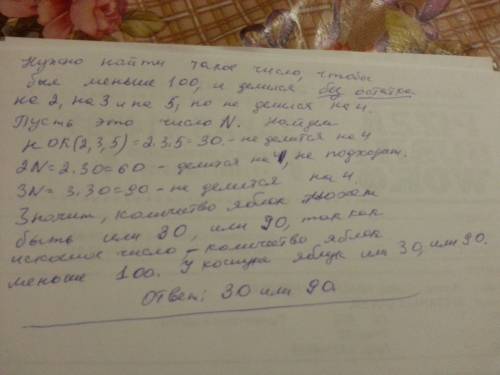 Нужно найти такое число, чтобы
был меньше 100, и делился без остатка
на 2, на 3 и на 5, но не делился на 4.
Пусть это число N. Найдем
НОК(2,3,5)=2.3.5=30.-не делится на 4
2N=2.30=60 - делится на 4, не подходит.
3N=3.30=90-не делится на 4.
Значит, количество яблок может
быть или 30, или 90, так как
искомое число - количество яблок
меньше 100. У кощуха яблук или 30, или 90.
Ответ: 30 или 90